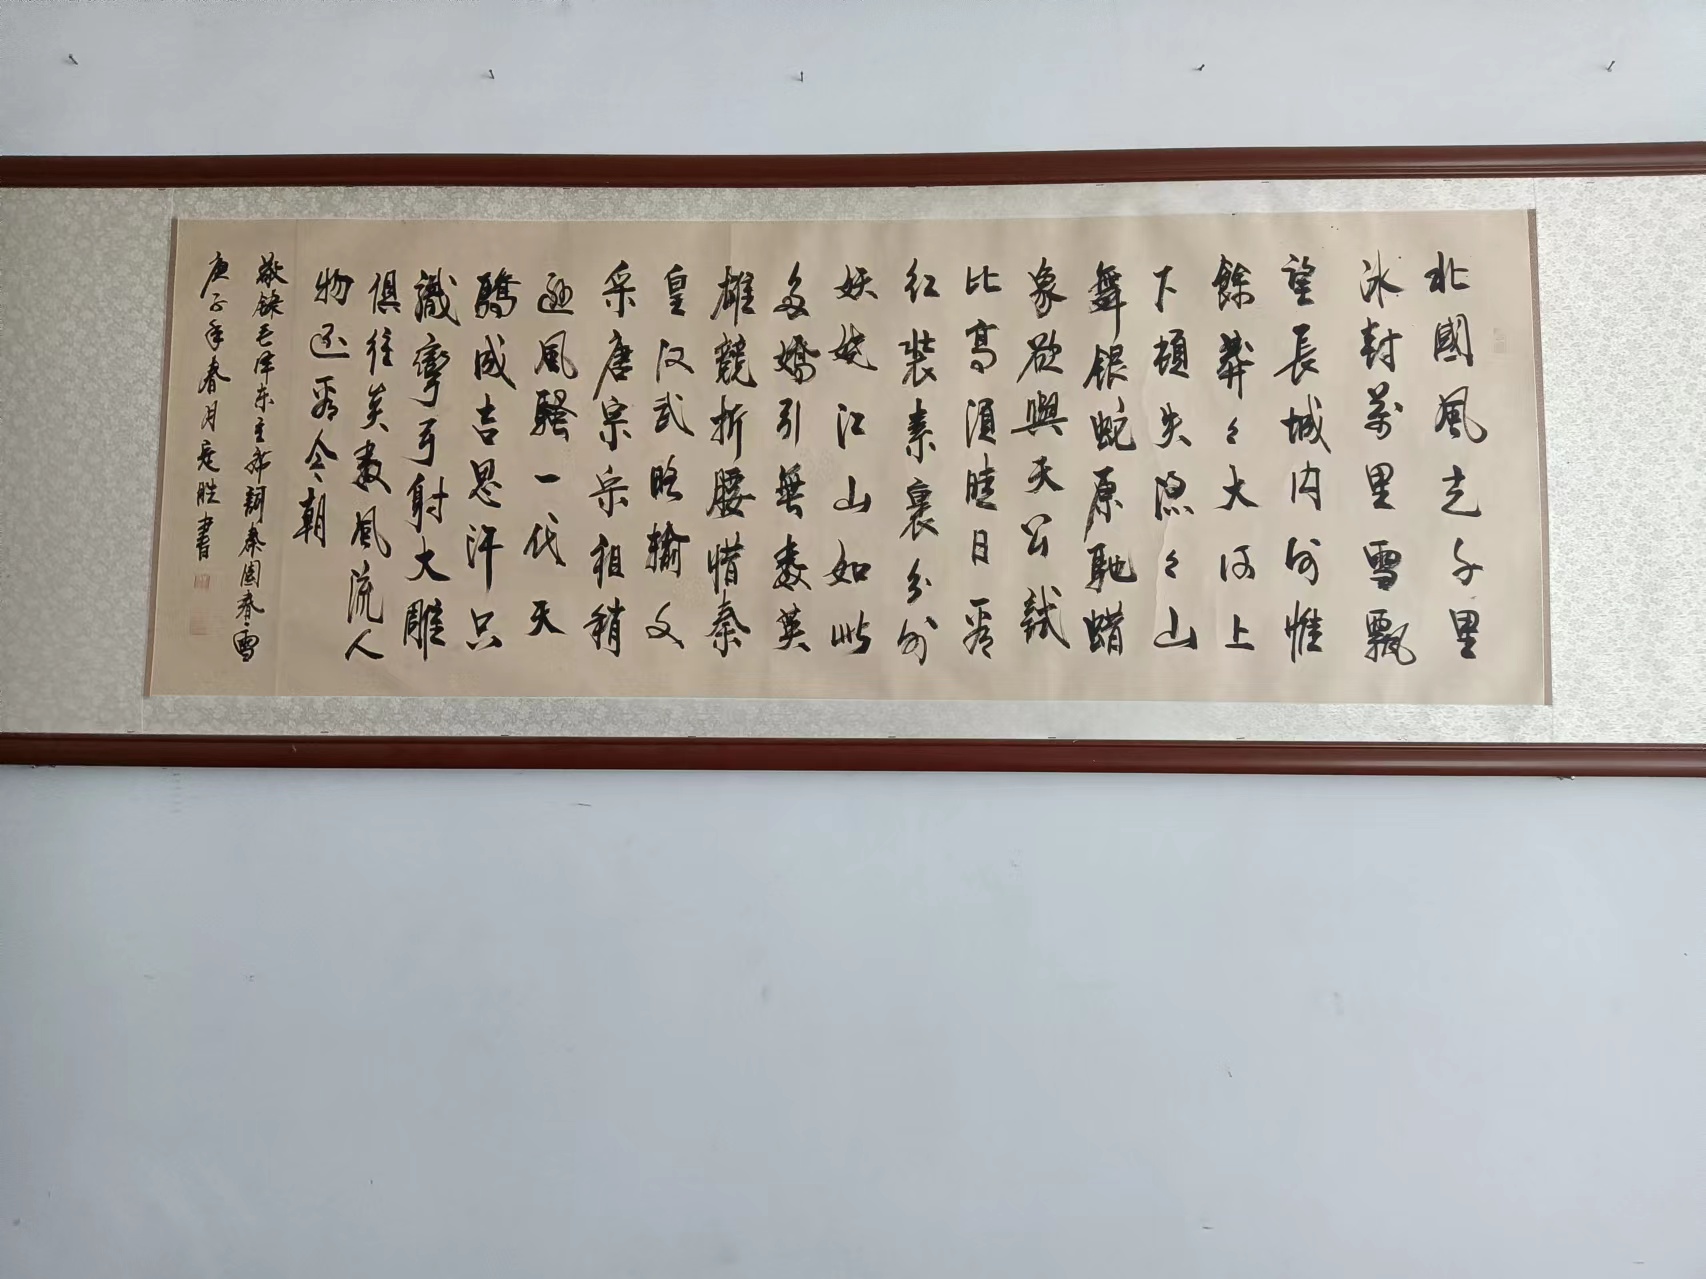 北國風光千里
冰封萬里雪飄
望長城内外惟
餘莽々大河上
下頓失滔々山
舞银蛇原馳蜡
象欲與天公試
比高須晴日看
红裝素裹分外
妖娆江山如此
多嬌引無數英
雄競折腰惜秦
皇汉武略輸文
采唐宗宋祖稍
遜風騷一代天
驕成吉思汗只
識彎弓射大雕
俱往矣數風流人
物还看今朝
敬錄毛泽东主席詞秦園春雪
庚子年春月胜書